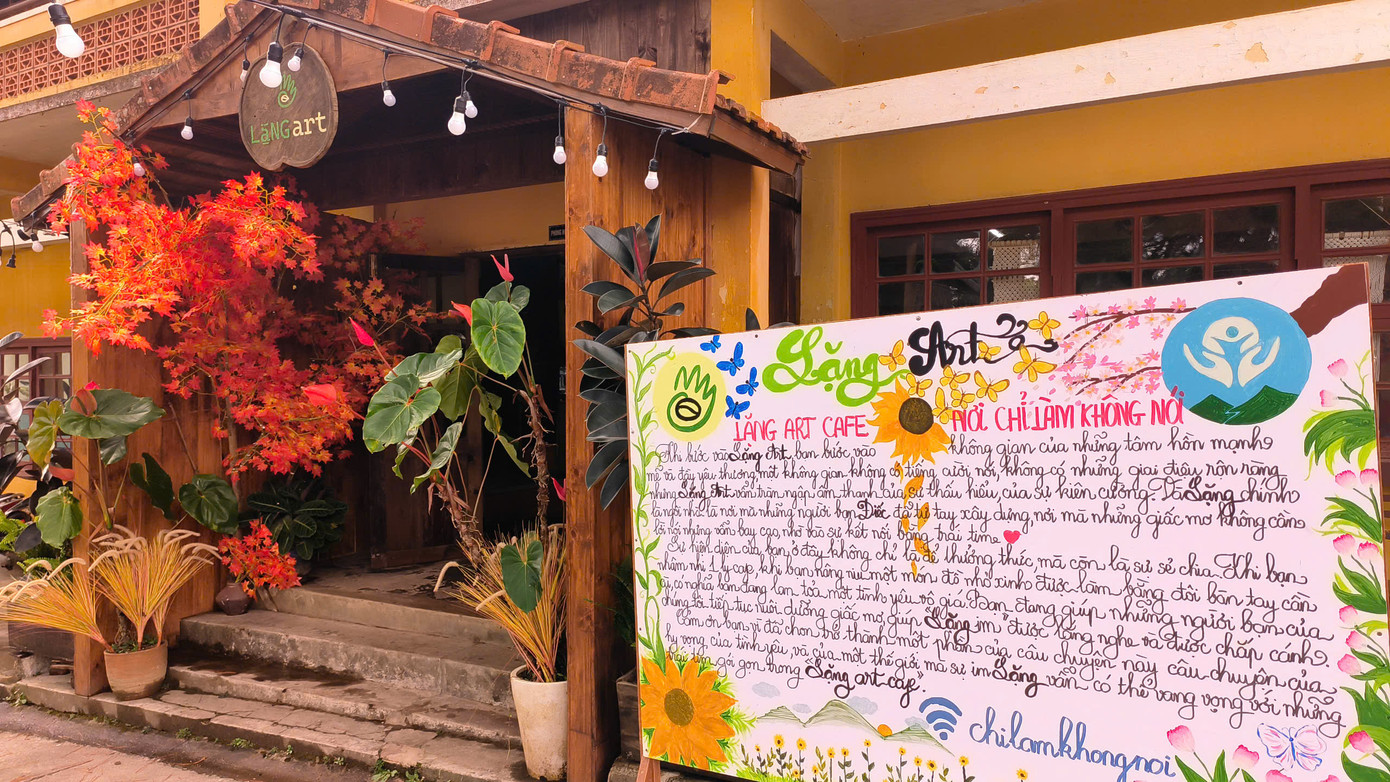 LặNG art
Lặng Art
LẶNG ART CAFE NƠI CHỈ LÀM KHÔNG NÓI
Khi bước vào Lặng Art, bạn bước vào không gian của những tâm hồn mạnh
mẽ và đầy yêu thương, một không gian không có tiếng cười nói, không có những giai điệu rộn ràng
nhưng Lặng Art vẫn tràn ngập âm thanh của sự thấu hiểu, của sự kiên cường. Và Lặng chính
là ngôi nhà, là nơi mà những người bạn Điếc đã tự tay xây dựng, nơi mà những giấc mơ không cần
lời nói nhưng vẫn bay cao, nhờ vào sự kết nối bằng trái tim
Sự hiện diện của bạn ở đây không chỉ là để thưởng thức, mà còn là sự sẻ chia. Khi bạn
nhâm nhi 1 ly cafe, khi bạn nâng niu một món đồ nhỏ xinh được làm bằng đôi bàn tay cần
cù, có nghĩa bạn đang lan tỏa một tình yêu vô giá. Bạn đang giúp những người bạn của
chúng tôi tiếp tục nuôi dưỡng giấc mơ, giúp "Lặng im" được lắng nghe và được chắp cánh.
Cảm ơn bạn vì đã chọn trở thành một phần của câu chuyện này câu chuyện của
hy vọng của tình yêu, và của một thế giới mà sự im Lặng vẫn có thể vang vọng với những
trái tim gói gọn trong "Lặng art cafe".
chilamkhongnoi